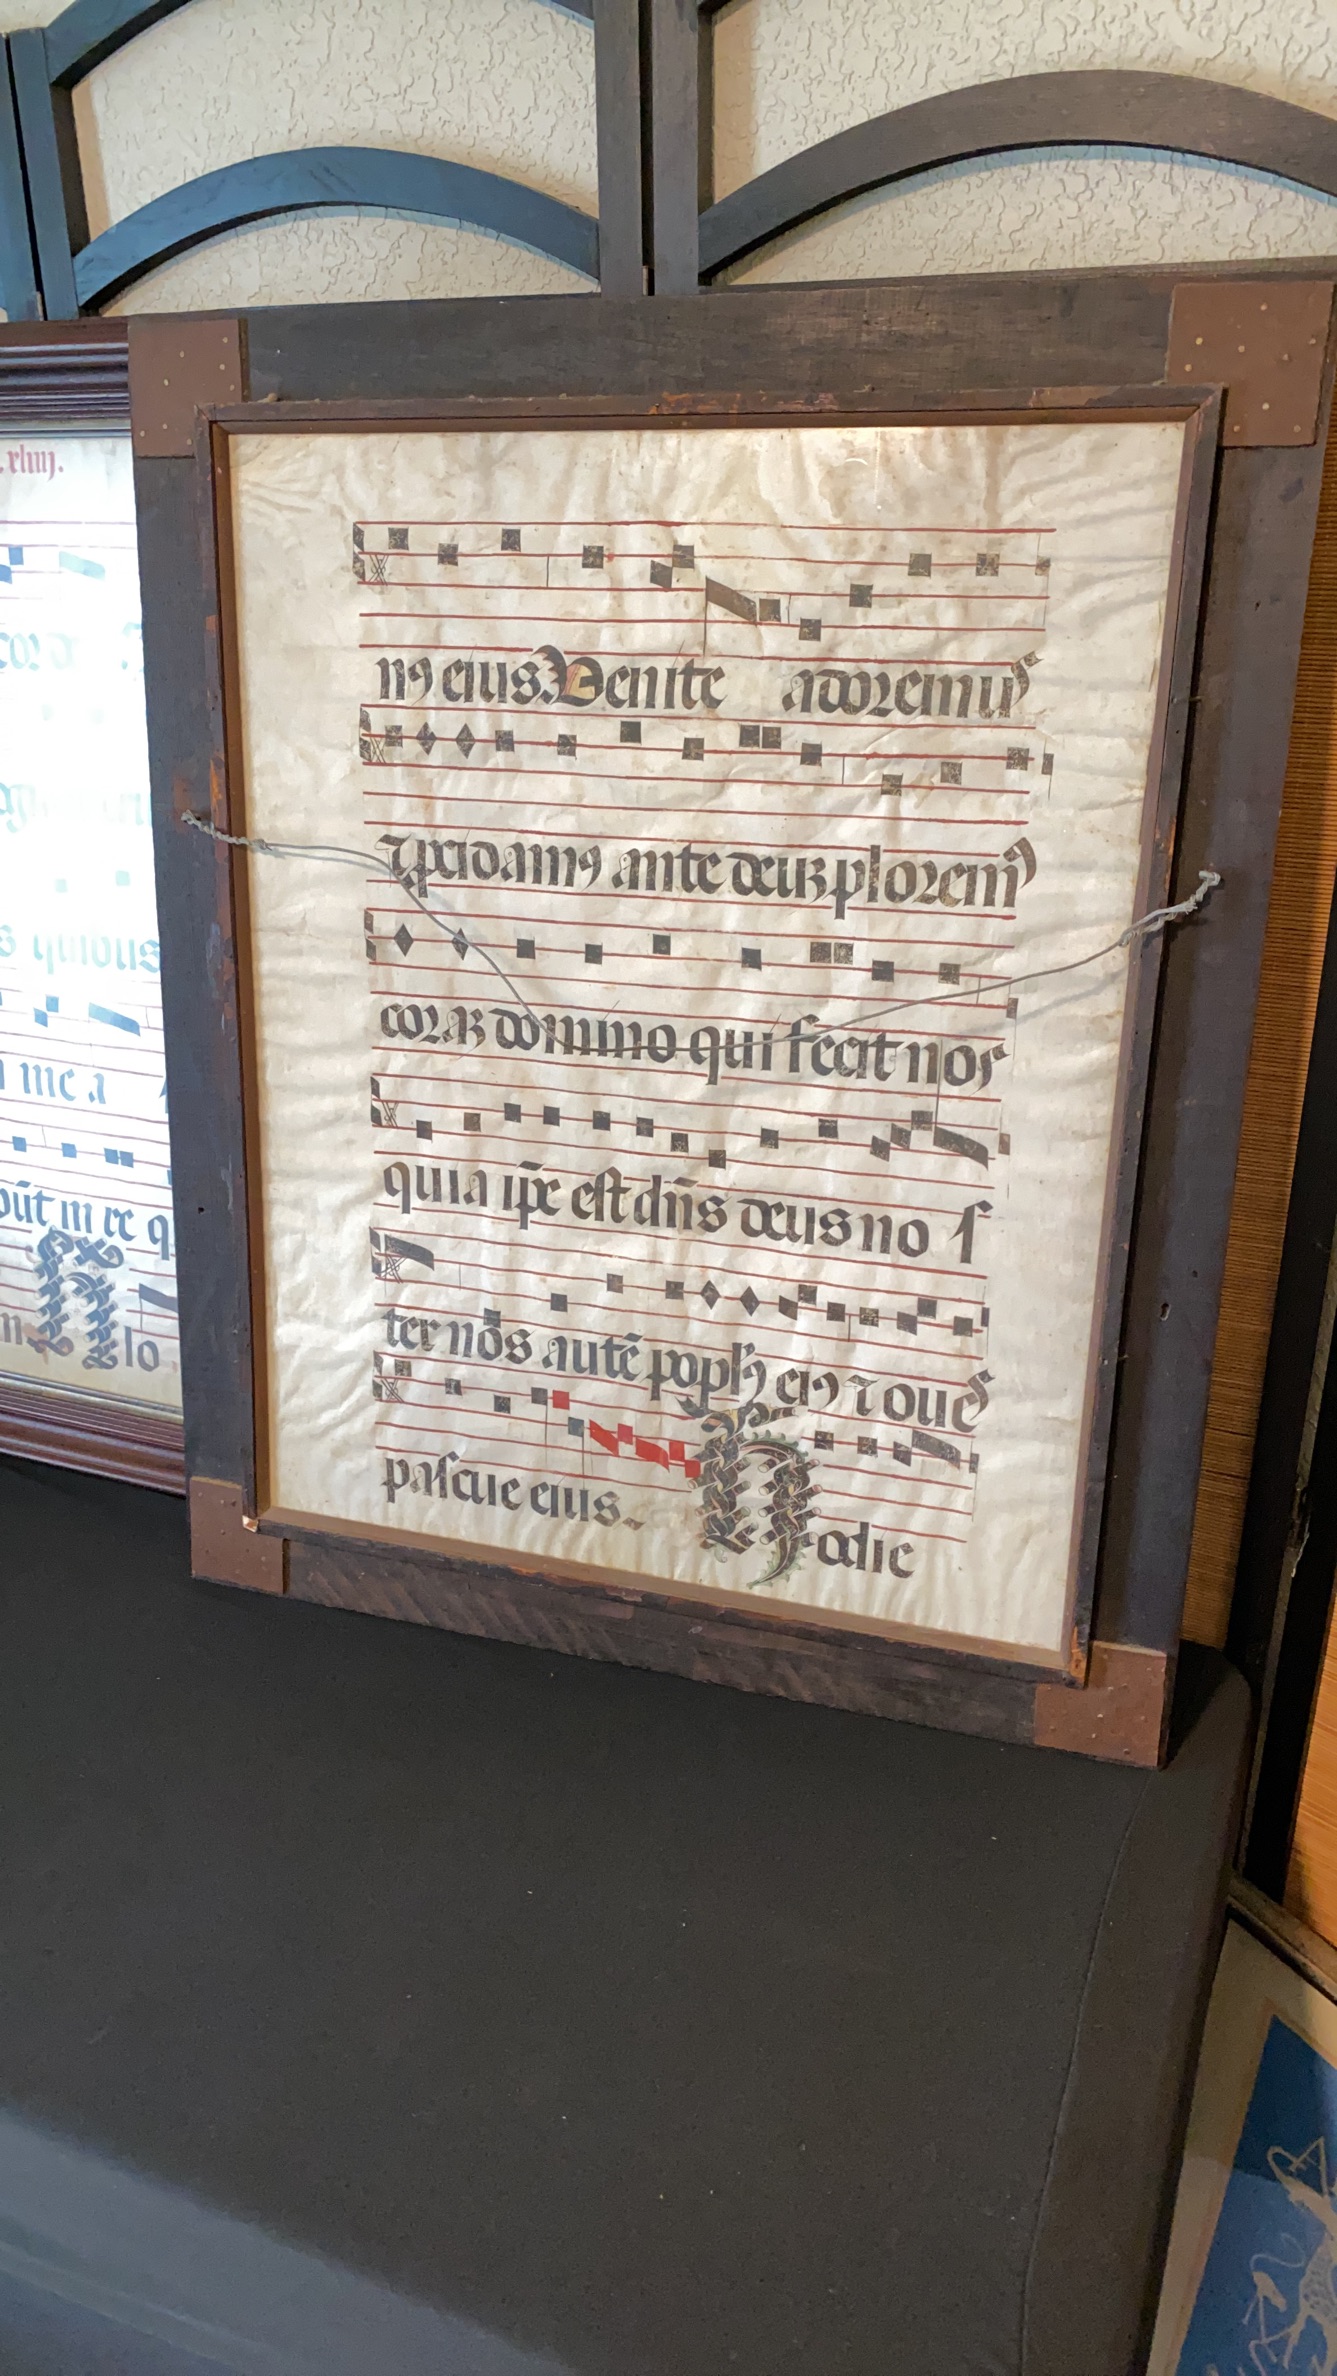 . xliiij.
cor
s quibus
n me a
pūt in ec q
lo
nꝯ eius Venite adoremus
⁊ p̄cidamꝯ ante deuꝫ ploremꝰ
coraꝫ domino qui fecit nos
quia ip̄e est dn̄s deus no s
ter nos autē popl̓ꝯ eiꝯ ⁊ oues
pascue eius.
Hodie